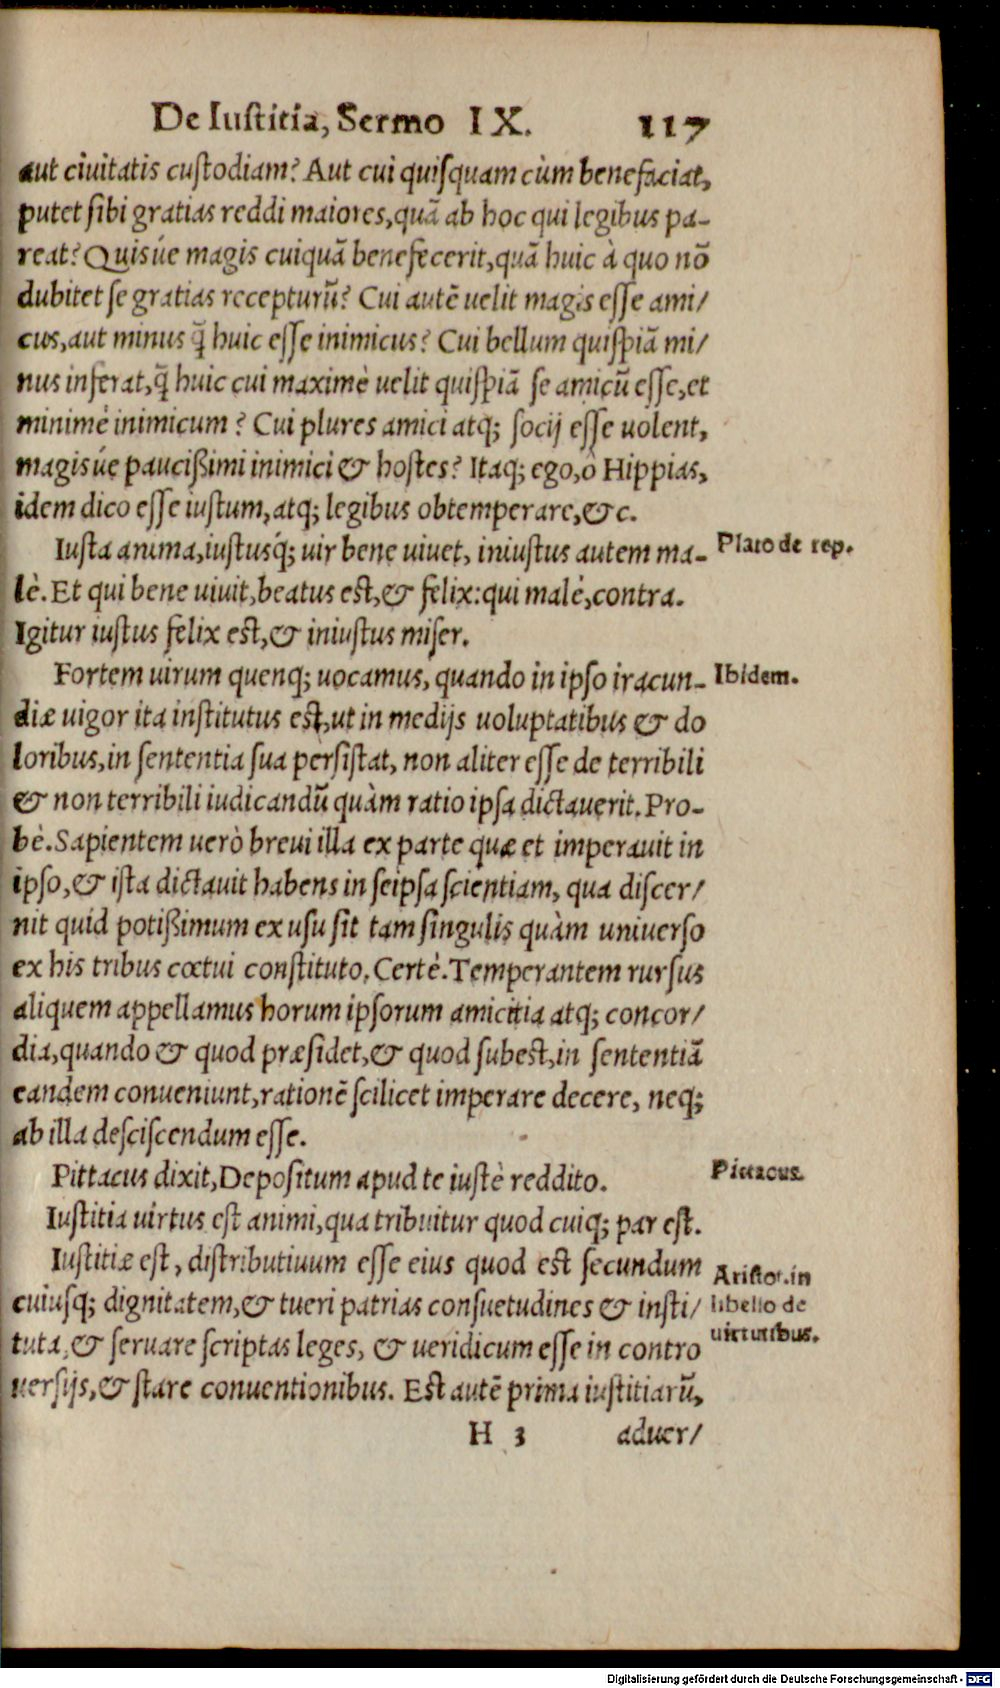 De Iustitia, Sermo IX. 117
aut ciuitatis custodiam? Aut cui quisquam cùm benefaciat,
putet sibi gratias reddi maiores, quã ab hoc qui legibus pa-
reat? Quisúe magis cuiquã benefecerit, quã huic à quo nõ
dubitet se gratias recepturũ? Cui autē uelit magis esse ami/
cus, aut minus q̃ huic esse inimicus? Cui bellum quispiã mi/
nus inferat, q̃ huic cui maximè uelit quispiã se amicũ esse, et
minimè inimicum? Cui plures amici atq; socij esse uolent,
magisúe paucißimi inimici & hostes? Itaq; ego, ô Hippias,
idem dico esse iustum, atq; legibus obtemperare, &c.
Iusta anima, iustusq́; uir bene uiuet, iniustus autem ma-
Plato de rep.
lè. Et qui bene uiuit, beatus est, & felix: qui malè, contra.
Igitur iustus felix est, & iniustus miser.
Fortem uirum quenq; uocamus, quando in ipso iracun-
Ibidem.
diæ uigor ita institutus est, ut in medijs uoluptatibus & do
loribus, in sententia sua persistat, non aliter esse de terribili
& non terribili iudicandũ quàm ratio ipsa dictauerit. Pro-
bè. Sapientem uerò breui illa ex parte quæ et imperauit in
ipso, & ista dictauit habens in seipsa scientiam, qua discer/
nit quid potißimum ex usu sit tam singulis quàm uniuerso
ex his tribus cœtui constituto. Certè. Temperantem rursus
aliquem appellamus horum ipsorum amicitia atq; concor/
dia, quando & quod præsidet, & quod subest, in sententiã
eandem conueniunt, rationē scilicet imperare decere, neq;
ab illa desciscendum esse.
Pittacus dixit, Depositum apud te iustè reddito.
Pittacus.
Iustitia uirtus est animi, qua tribuitur quod cuiq; par est.
Iustitiæ est, distributiuum esse eius quod est secundum
Aristot. in
cuiusq; dignitatem, & tueri patrias consuetudines & insti/
libello de
tuta, & seruare scriptas leges, & ueridicum esse in contro
uirtutibus.
uersijs, & stare conuentionibus. Est autē prima iustitiarũ,
H 3 aduer/
Digitalisierung gefördert durch die Deutsche Forschungsgemeinschaft - DFG